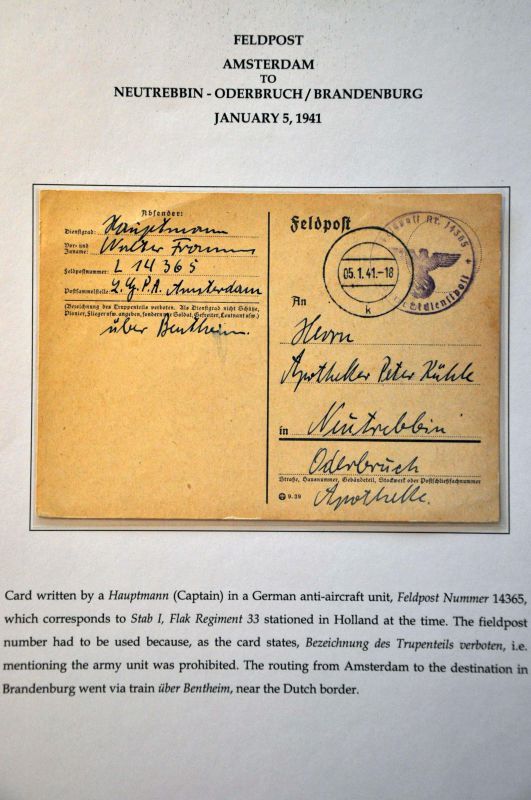 FELDPOST
AMSTERDAM
TO
NEUTREBBIN - ODERBRUCH / BRANDENBURG
JANUARY 5, 1941
Absender:
Dienstgrad: Hauptmann
Vor- und
Zuname: Walter
Feldpostnummer: L 14365
Postsammelstelle: L.G.P.A. Amsterdam
(Bezeichnung des Truppenteils verboten. Als Dienstgrad nicht Schütze,
Pionier, Flieger usw. angeben, sondern nur Soldat, Gefreiter, Leutnant usw.)
über Bentheim.
Feldpost
05.1.41.-18
k
Nr. 14365
An
Herrn
Apotheker Peter Kühle
in Neutrebbin
Oderbruch
Straße, Hausnummer, Gebäudeteil, Stockwerk oder Postschließfachnummer
9.39
Apotheke.
Card written by a Hauptmann (Captain) in a German anti-aircraft unit, Feldpost Nummer 14365,
which corresponds to Stab I, Flak Regiment 33 stationed in Holland at the time. The fieldpost
number had to be used because, as the card states, Bezeichnung des Trupenteils verboten, i.e.
mentioning the army unit was prohibited. The routing from Amsterdam to the destination in
Brandenburg went via train über Bentheim, near the Dutch border.